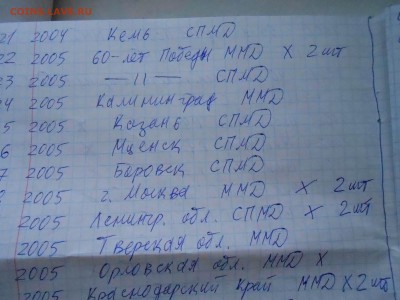 21 2004 Кемь СПМД
22 2005 60-лет Победы ММД X 2 шт
23 2005 — 11 — СПМД
24 2005 Калининград ММД
5 2005 Казань СПМД
6 2005 Мценск СПМД
7 2005 Боровск СПМД
2005 г. Москва ММД X 2 шт
2005 Ленингр. обл. СПМД X 2 шт
2005 Тверская обл. ММД
2005 Орловская обл. ММД X
2005 Краснодарский край ММД X 2 шт